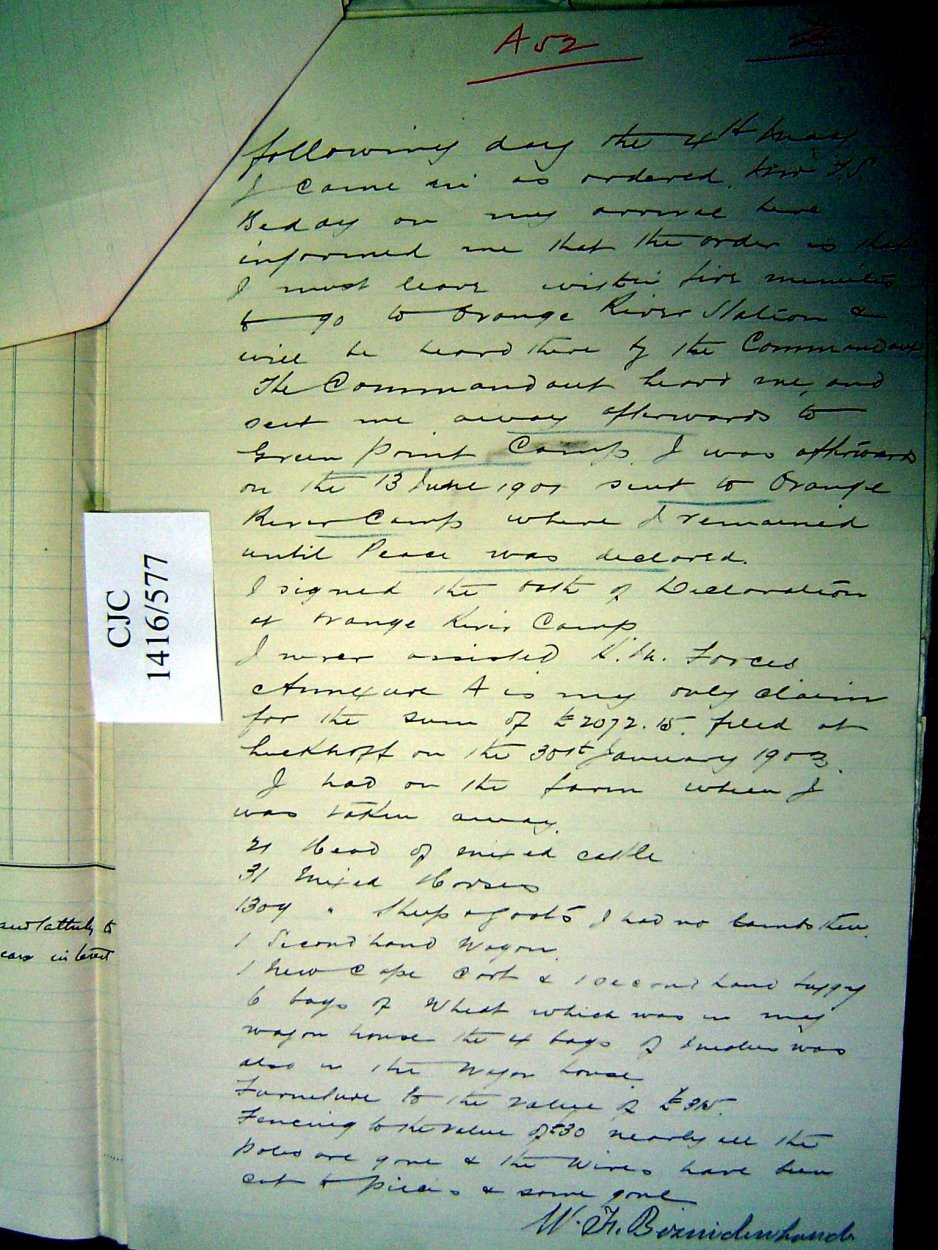 A 52
following day the 4th May
I came in as ordered. Mr F S
Beday on my arrival here
informed me that the order is that
I must leave within five minutes
to go to Orange River Station &
will be heard there by the Commandant
The Commandant heard me, and
sent me away afterwards to
Green Point Camp. I was afterwards
on the 13 June 1901 sent to Orange
River Camp where I remained
until Peace was declared.
I signed the Oath of Declaration
at Orange River Camp
I never assisted H.M. Forces
Annexure A is my only claim
for the sum of £2072.15. filed at
Luckhoff on the 30th January 1903.
I had on the farm when I
was taken away.
21 Head of mixed cattle
31 Mixed Horses
1304 " Sheep & Goats I had no lambs then.
1 Second hand Wagon.
1 New Cape Cart & 1 second hand buggy
6 bags of Wheat which was in my
wagon house the 4 bags of mealies was
also in the Wagon house
Furneture to the value of £315.
Fencing to the value of £30 nearly all the
Poles are gone & the Wires have been
cut to pieces & some gone
W. F. Bezuidenhoud
CJC
1416/577
to
interest